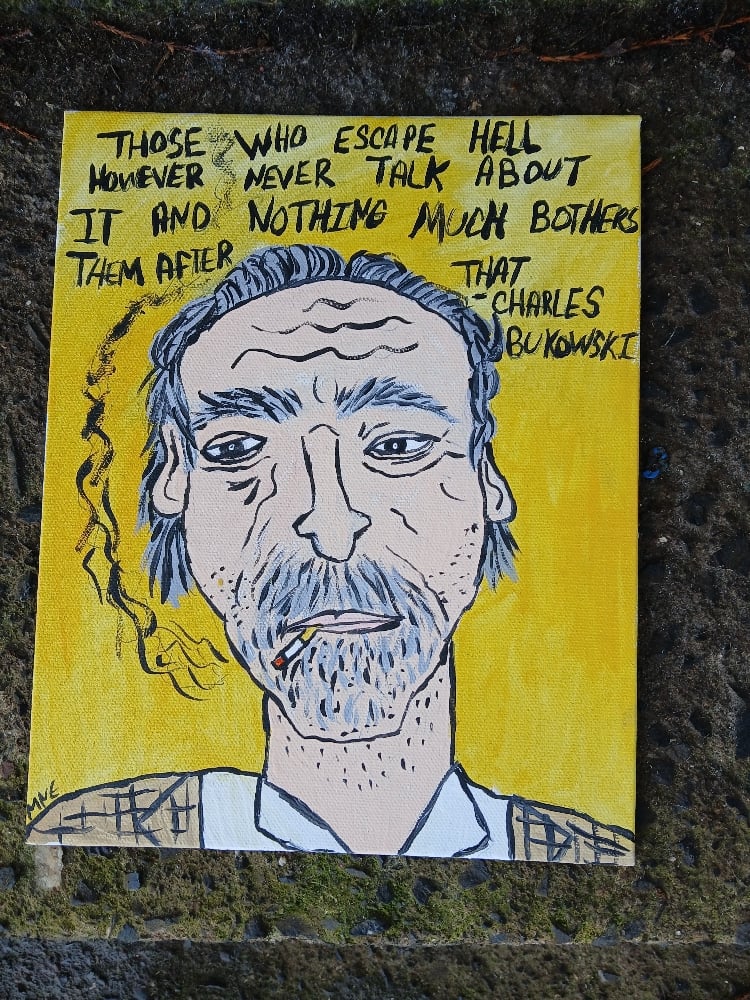 THOSE WHO ESCAPE HELL
HOWEVER NEVER TALK ABOUT
IT AND NOTHING MUCH BOTHERS
THEM AFTER THAT
-CHARLES
BUKOWSKI
MNE